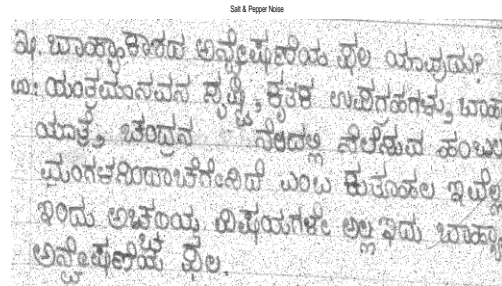 Salt & Pepper Noise
೩. ಬಾಹ್ಯಾಕಾಶದ ಅನ್ವೇಷಣೆಯ ಫಲ ಯಾವುದು?
ಉ: ಯಂತ್ರಮಾನವನ ಸೃಷ್ಟಿ, ಕೃತಕ ಉಪಗ್ರಹಗಳು, ಬಾಹ
ಯಾತ್ರೆ, ಚಂದ್ರನ ನೆಲದಲ್ಲಿ ನೆಲೆಸುವ ಹಂಬಲ
ಮಂಗಳನಿಂದಾಚೆಗೇನಿದೆ ಎಂಬ ಕುತೂಹಲ ಇವೆಲ್ಲ
ಇಂದು ಅಚ್ಚರಿಯ ವಿಷಯಗಳೇ ಅಲ್ಲ ಇದು ಬಾಹ್ಯಾ
ಅನ್ವೇಷಣೆಯ ಫಲ.